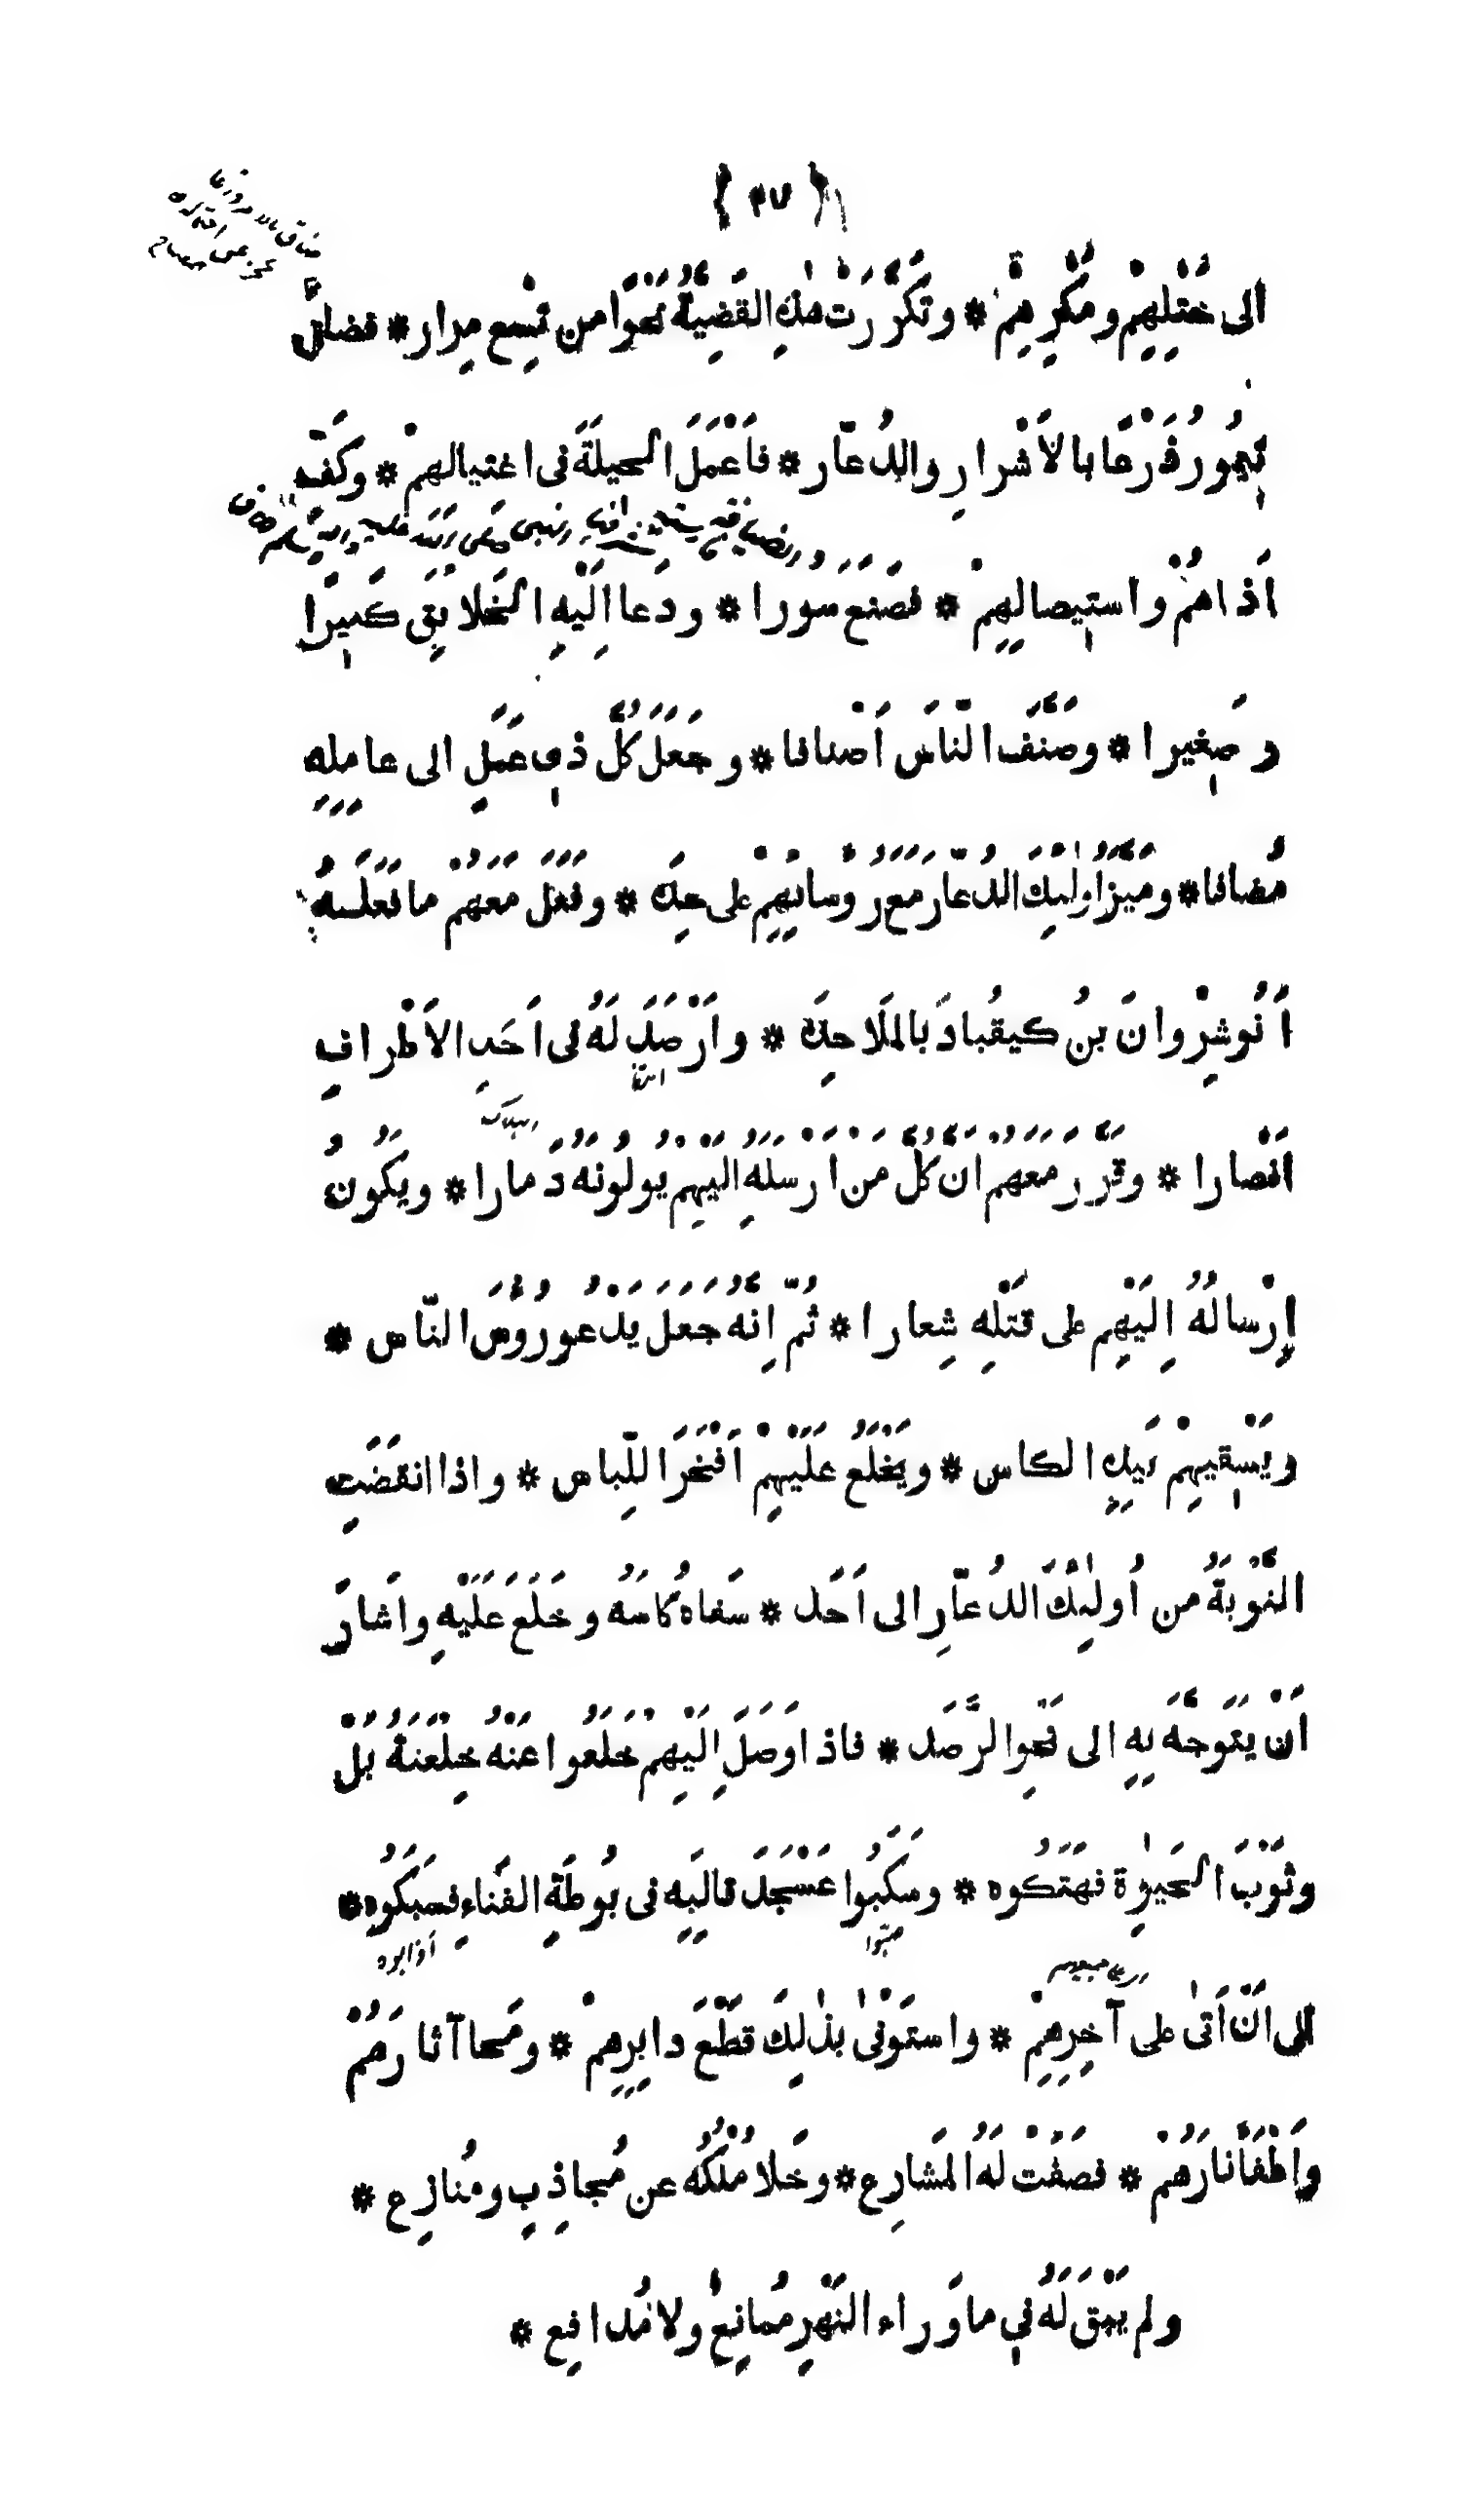 ﴿ ٣٧ ﴾
الى خَتْلِهِمْ ومَكْرِهِمْ * وتَكَرَّرَتْ هٰذِهِ القَضِيَّةُ نَحْوًا من تِسْعِ مِرار * فضاقَ
تِيمُورُ ذَرْعًا بالاَشْرارِ والدُعّار * فاَعْمَلَ الحيلَةَ فى اغتيالهمْ * وكَفِّ
اَذاهُمْ واستِيصالِهِمْ * فصَنَعَ سُورا * ودَعا اِلَيْهِ الخَلايِقَ كَبيرًا
وصَغيرا * وصَنَّفَ النّاسَ اَصْنافا * وجَعَلَ كُلَّ ذى عَمَلٍ الى عامِلِهِ
مُضافا * ومَيَّزَ اُولٰئِكَ الدُعّارَ مَعَ رُؤُسائِهِمْ على حِدَه * وفَعَلَ مَعَهُمْ ما فَعَلَهُ
اَنُوشِرْوانَ بنُ كيقُبادَ بالمَلاحِدَه * واَرْصَدَ لَهُ فى اَحَدِ الاَطْرافِ
اَنْصارا * وقَرَّرَ مَعَهُمْ اَنَّ كُلَّ مَن اَرْسَلَهُ اِلَيْهِمْ يُولُونَهُ دَمارا * ويَكُونُ
اِرْسالُهُ اِلَيْهِم على قَتْلِهِ شِعارا * ثُمَّ اِنَّهُ جَعَلَ يَدْعُو رُؤُسَ النّاس *
ويَسْقيهِمْ بَيَدِهِ الكاس * ويَخْلَعُ عَلَيْهِمْ اَفْخَرَ اللِّباس * واذا انقَضَتِ
النَّوْبَةُ من اُولٰئِكَ الدُعّارِ الى اَحَد * سَقاهُ كَاسَهُ وخَلَعَ عَلَيْهِ واَشارَ
اَنْ يُتَوَجَّهَ بِهِ الى نَحْوِ الرَّصَد * فاذا وَصَلَ اِلَيْهِمْ خَلَعُوا عَنْهُ خِلْعَتَهُ بَلْ
وثَوْبَ الحَيٰوةِ فهَتَكُوه * وسَكَبُوا عَسْجَدَ قالَبِهِ فى بُوطَةِ الفَناءِ فسَبَكُوه *
الى اَنْ اَتٰى على آخِرِهِمْ * واستَوْفٰى بذٰلِكَ قَطْعَ دابِرِهِمْ * ومَحا آثارَهُمْ
واَطْفَأَ نارَهُمْ * فصَفَتْ لَهُ المَشارِع * وخَلا مُلْكُه عن مُجاذِبٍ ومُنازِع *
ولم يَبْقَ لَهُ فى ما وَراء النَّهْرِ مُمانِعٌ ولا مُدافِع *